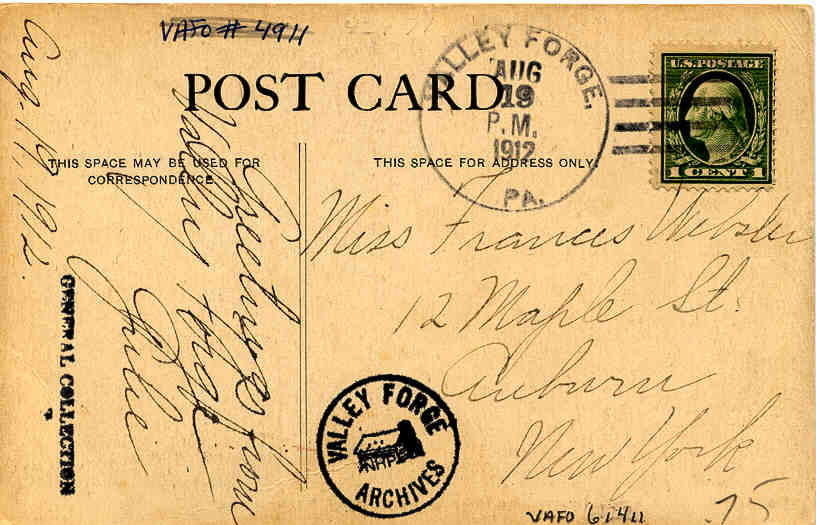 VAFO # 4911
POST CARD
THIS SPACE MAY BE USED FOR
CORRESPONDENCE.
THIS SPACE FOR ADDRESS ONLY.
VALLEY FORGE.
AUG
19
P.M.
1912
PA.
U.S. POSTAGE
1 CENT 1
Aug. 19, 1912.
Greetings from
Valley Forge
Julie
GENERAL COLLECTION
Miss Frances Webster
12 Maple St.
Auburn
New York
VALLEY FORGE
NHP
ARCHIVES
VAFO 61411
.75